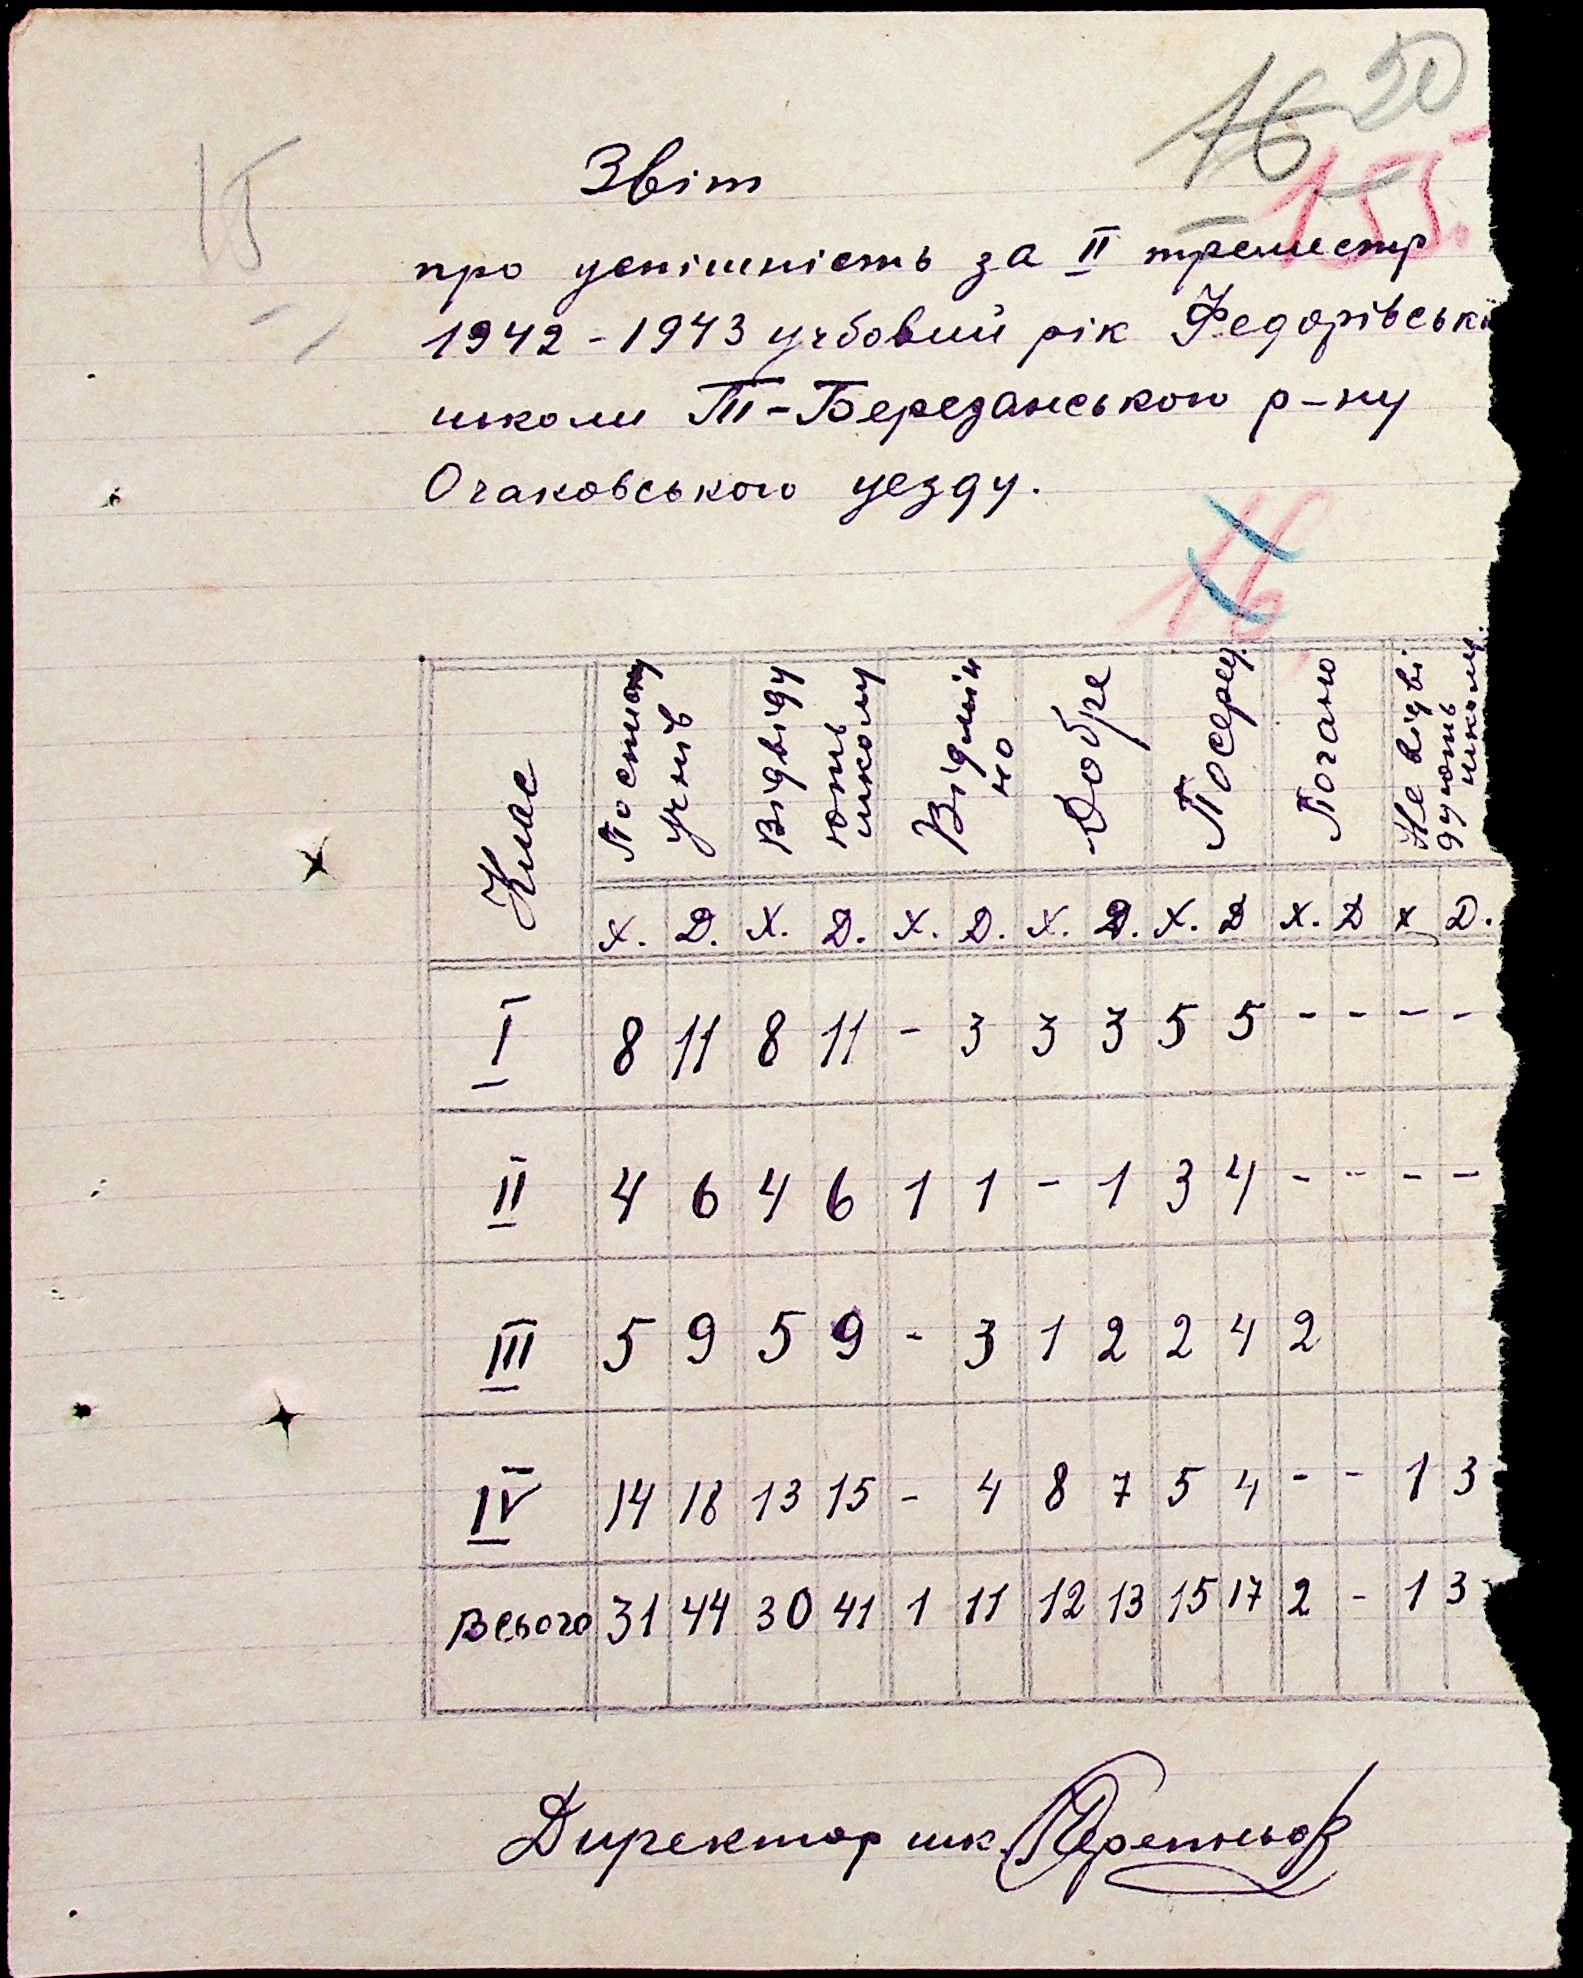 16 20
155.
15
Звіт
про успішність за II треместр
1942-1943 учбовий рік Федорівської
школи Т-Березанського р-ну
Очаковського уезду.
16
Клас | Поспис. учнів | Відвідують школу | Відмінно | Добре | Посеред. | Погано | Не відвідують школи.
Х. Д. Х. Д. Х. Д. Х. Д. Х. Д Х. Д Х Д.
I 8 11 8 11 - 3 3 3 5 5 - - - -
II 4 6 4 6 1 1 - 1 3 4 - - - -
III 5 9 5 9 - 3 1 2 2 4 2
IV 14 18 13 15 - 4 8 7 5 4 - - 1 3
Всього 31 44 30 41 1 11 12 13 15 17 2 - 1 3
Директор шк.